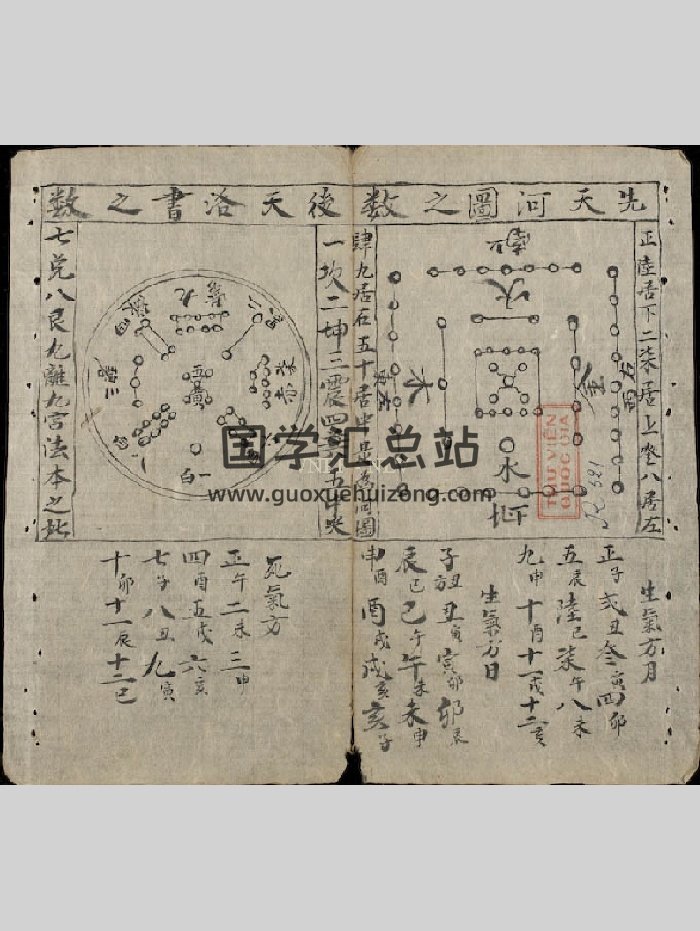 先天河圖之数
後天洛書之数
正陸居下二柒居上叁八居左
肆九居右五十居中是為河圖
一坎二坤三震四巽五中央
七兑八艮九離九宫法本之此
南
火
木
金
水
五黃
九
一白
国学汇总站
www.guoxuehuizong.com
THU VIÊN
QUOC GIA
R.581
生氣方月
正子弍丑叁寅四卯
五辰陸巳柒午八未
九申十酉十一戌十二亥
生氣方日
子丑丑寅寅卯卯辰
辰巳巳午午未未申
申酉酉戌戌亥亥子
死氣方
正午二未三申
四酉五戌六亥
七子八丑九寅
十卯十一辰十二巳